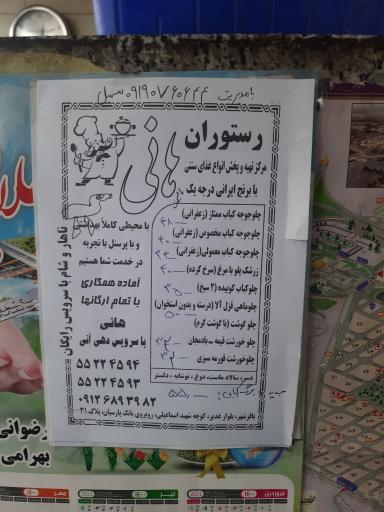 با مدیریت ۰۹۱۹۰۷۶۰۶۴۴ سهیل
رستوران
هانی
مرکز تهیه و پخش انواع غذای سنتی
با برنج ایرانی درجه یک
چلوجوجه کباب ممتاز (زعفرانی)
چلوجوجه کباب مخصوص (زعفرانی)
چلوجوجه کباب معمولی (زعفرانی)
زرشک پلو با مرغ (سرخ کرده)
چلوکباب کوبیده (۲ سیخ)
چلوماهی قزل آلا (درسته و بدون استخوان)
چلو گوشت (با گوشت گرم)
چلو خورشت قیمه بادمجان
چلوخورشت قورمه سبزی
دسر: سالاد، ماست، دوغ، نوشابه، دلستر
با محیطی کاملاً بهداشتی
و با پرسنل با تجربه
در خدمت شما هستیم
آماده همکاری
با تمام ارگانها
هانی
با سرویس دهی آنی
۵۵ ۲۲ ۴۵ ۹۴
۵۵ ۲۲ ۴۵ ۹۳
۰۹۱۲ ۶۸۹ ۳۹ ۸۲
ناهار و شام با سرویس رایگان
باقرشهر، بلوار غدیر، کوچه شهید اسماعیلی، روبروی بانک پارسیان، پلاک ۳۱
رضوانی
بهرامی
فروردین
تیر
مهر